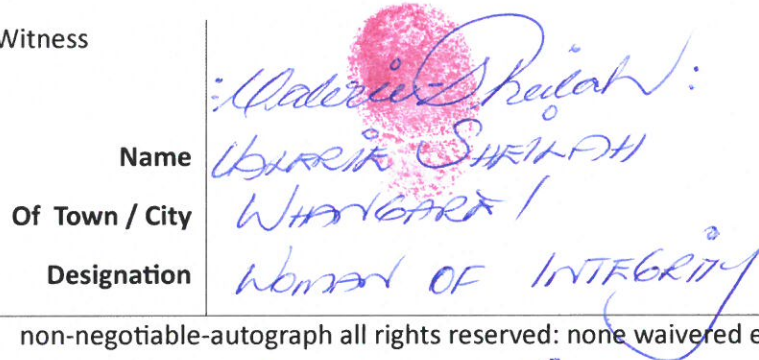 Witness
:Valerie-Sheilah:
Name VALERIE SHEILAH
Of Town / City WHANGAREI
Designation WOMAN OF INTEGRITY
non-negotiable-autograph all rights reserved: none waivered e